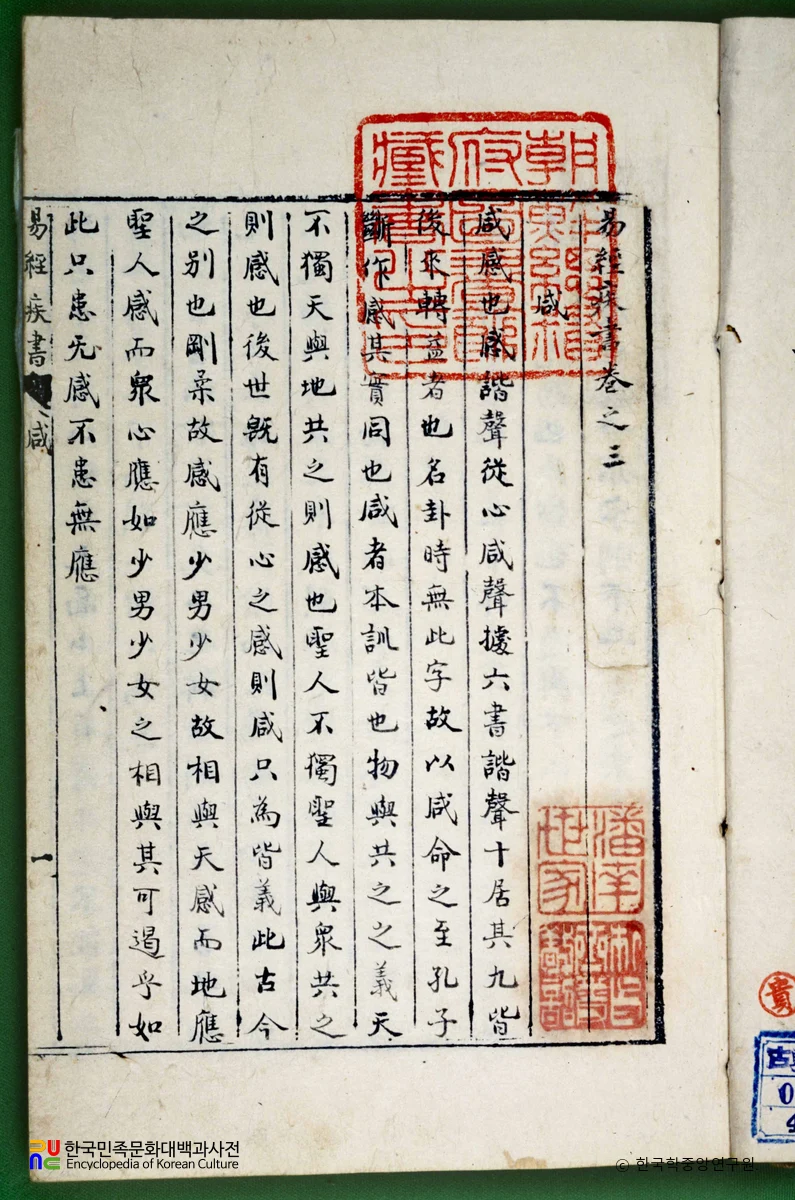 易經疾書卷之三
咸
咸感也感諧聲從心咸聲據六書諧聲十居其九皆
後來轉益者也名卦時無此字故以咸命之至孔子
斷作感其實同也咸者本訓皆也物與共之之義天
不獨天與地共之則感也聖人不獨聖人與衆共之
則感也後世旣有從心之感則咸只為皆義此古今
之別也剛柔故感應少男少女故相與天感而地應
聖人感而衆心應如少男少女之相與其可遏乎如
此只患无感不患無應
易經疾書 咸 一
潘南
世家
貴
古
0
4
한국민족문화대백과사전
Encyclopedia of Korean Culture
© 한국학중앙연구원